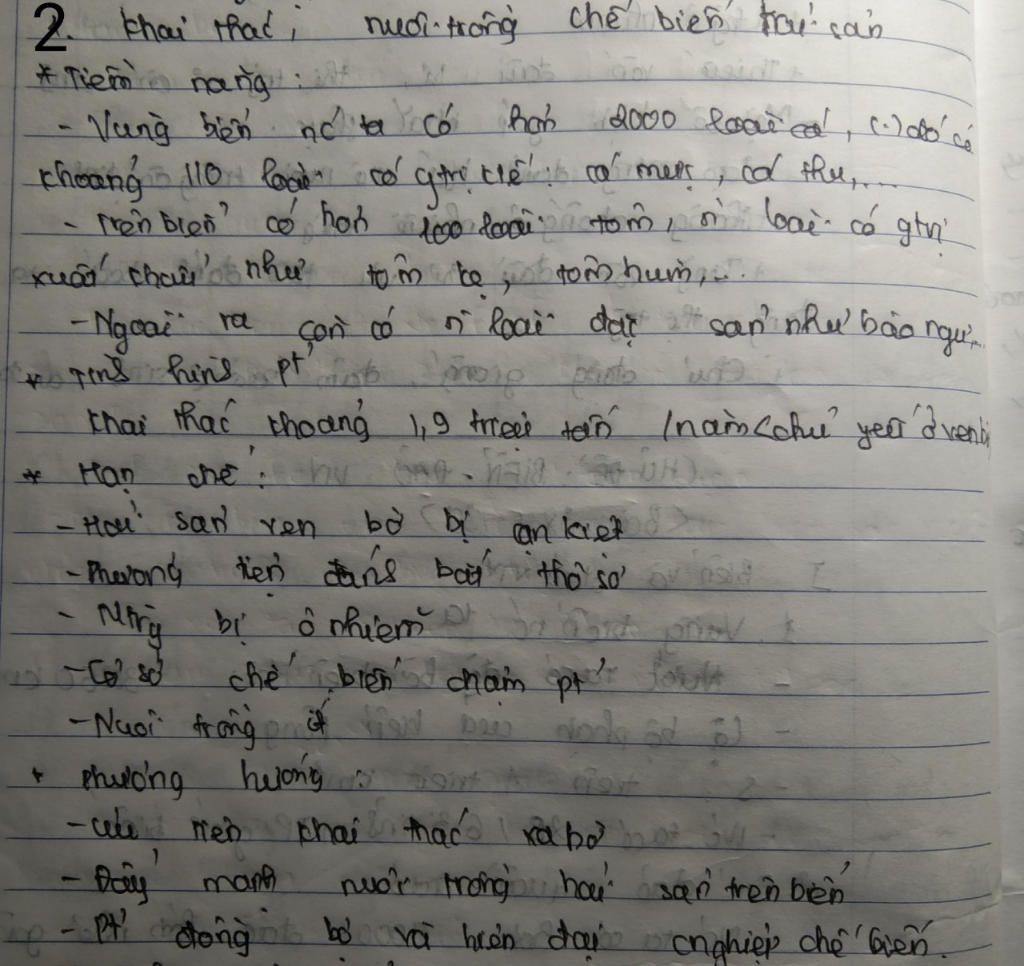 2. Khai thác, nuôi trồng chế biến hải sản
* Tiềm năng:
- Vùng biển nc ta có hơn 2000 loài cá, (.) đó có
khoảng 110 loài có gtrị ktế: cá mực, cá thu,...
- Trên biển có hơn 100 loài tôm, n loài có gtrị
xuất khẩu như tôm he, tôm hùm,...
- Ngoài ra còn có n loài đặc sản như bào ngư,...
* Tình hình pt
Khai thác khoảng 1,9 triệu tấn /năm (chủ yếu ở ven b
* Hạn chế:
- Hải sản ven bờ bị cạn kiệt
- Phương tiện đánh bắt thô sơ
- Mtrg bị ô nhiễm
- Cơ sở chế biến chậm pt
- Nuôi trồng ít
+ Phương hướng:
- Ưu tiên khai thác xa bờ
- Đẩy mạnh nuôi trồng hải sản trên biển
- Pt đồng bộ và hiện đại cnghiệp chế biến.